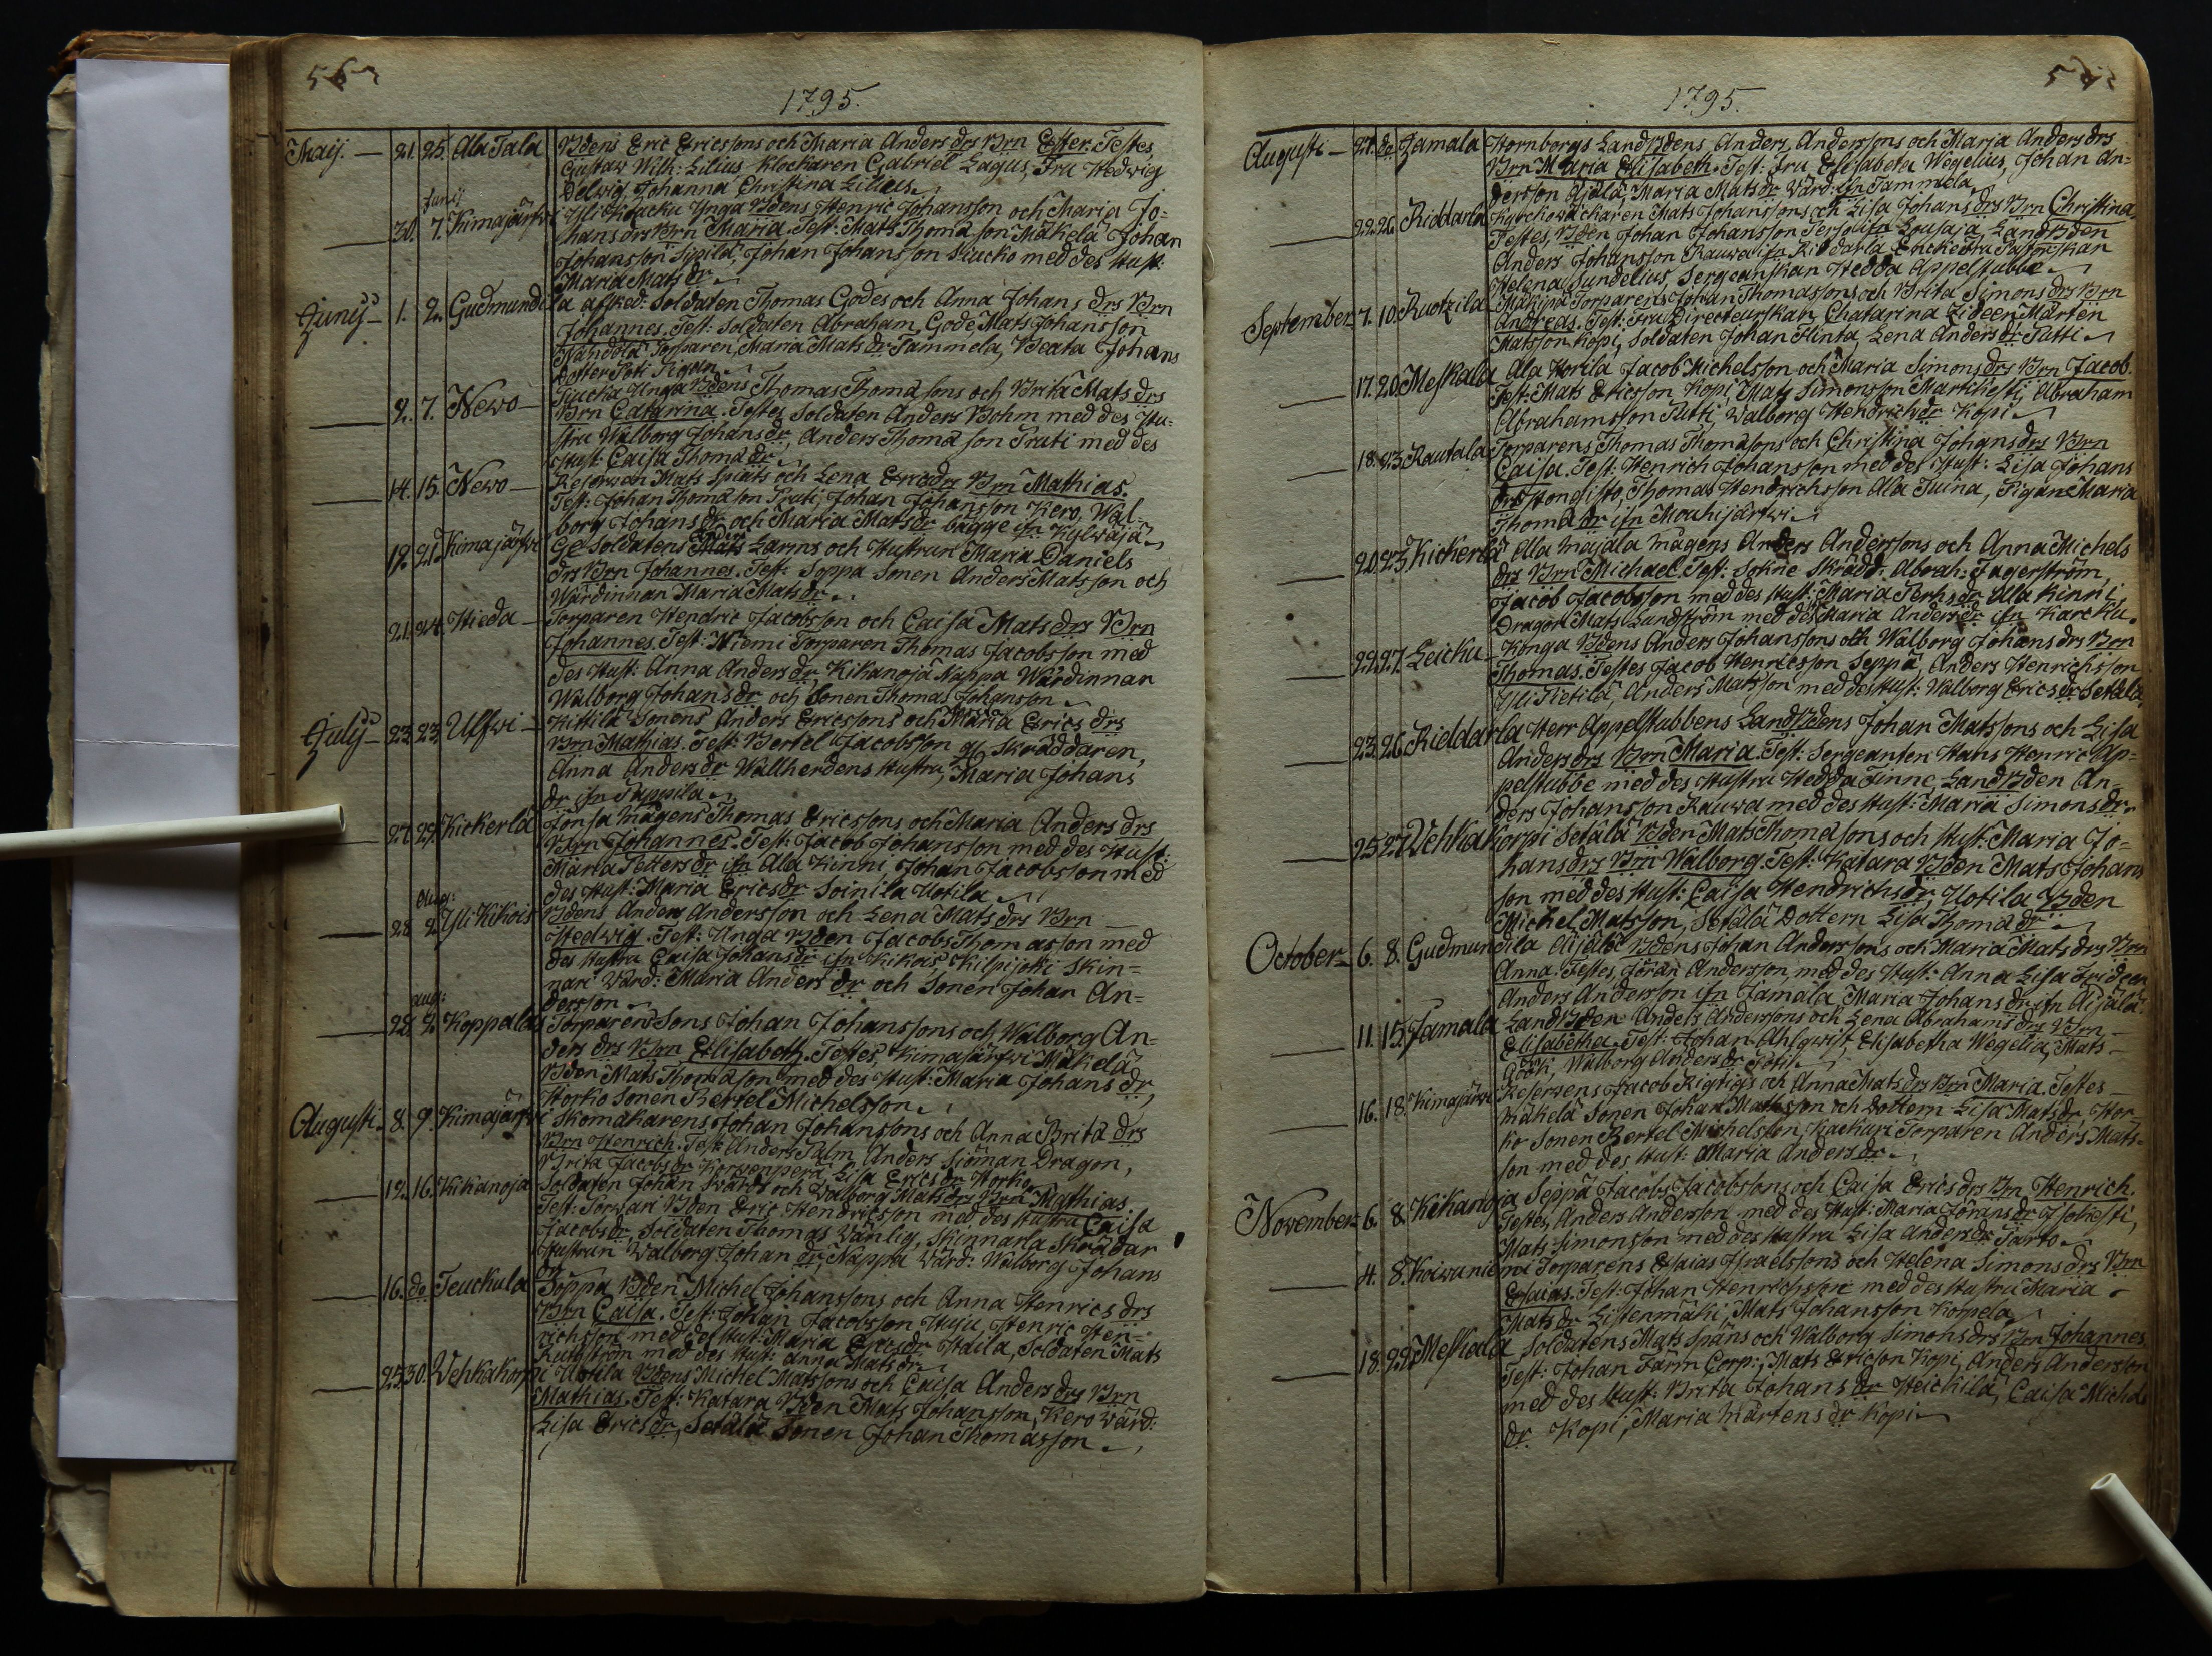 1795.
Maij. — 21. 25. Ala Tala Bdens Eric Ericssons och Maria Anders drs Brn Ester. Testes
Gustaw Wilh: Lilius, Klockaren Gabriel Lagus, Fru Hedwig
Delwig, Johanna Christina Lilius
Junij
— 30. 7. Kimajärfwi Yli Knacku Ynga Bdens Henric Johansson och Maria Jo=
hans drs Brn Maria. Test: Mats Thomason Mäkelä Johan
Johansson Sipilä, Johan Johansson Stucko med des Hust:
Maria Mats dr
Junij — 1. 2. Gudmundila afsked: Soldaten Thomas Godes och Anna Johans drs Brn
Johannes. Test: Soldaten Abraham Gode Mats Johansson
Wandola Torparen, Maria Mats dr Tammela, Beata Johans
doter Poti Pigan
— 2. 7. Newo — Piucka Unga Bdens Thomas Thomasons och Brita Mats drs
Brn Catarina. Testes Soldaten Anders Bohm med des Hu=
stru Walborg Johans dr, Anders Thomason Prati med des
Hust: Caisa Thoma dr
— 14. 15. Newo — Reserwen Mats Spiats och Lena Erics drs Brn Mathias.
Test: Johan Thomason Prati, Johan Johansson Kero, Wal=
borg Johans dr och Maria Mats dr bägge ifn Kylwäjä
Anders
19. 21. Kimajärfwi Ge Soldatens Mats Larins och Hustrun Maria Daniels
drs Brn Johannes. Test: Soppa Sonen Anders Matsson och
Wärdinnan Maria Mats dr
21. 24. Hieda — Torparen Hendric Jacobsson och Caisa Mats drs Brn
Johannes. Test: Niemi Torparen Thomas Jacobsson med
des Hust: Anna Anders dr, Kikanoja Nappa Wärdinnan
Walborg Johans dr och Sonen Thomas Johansson
July — 23. 23. Ulfwi — Kittilä Sonens Anders Ericssons och Maria Erics drs
Brn Mathias. Test: Bertel Jacobsson gl Skräddaren,
Anna Anders dr Wallherdens Hustru, Maria Johans
dr ifn Pappila
— 27. 29. Kickerlä Jonsa Mågens Thomas Ericssons och Maria Anders drs
Brn Johannes. Test: Jacob Johansson med des Hust:
Maria Petters dr ifn Ala Kinni, Johan Jacobsson med
des Hust: Maria Erics dr Soinila Uotila
Aug:
— 28. 2. Yli Kikois Bdens Anders Andersson och Lena Mats drs Brn
Hedwig. Test: Unga Bden Jacobs Thomasson med
des Hustru Caisa Johans dr ifn Kikois, Kilpijoki Skin=
nari Wärd: Maria Anders dr och Sonen Johan An=
dersson
aug:
— 28. 2. Koppala Torparens Sons Johan Johanssons och Walborg An=
ders drs Brn Elisabeth. Testes, Kimajärfwi Mäkelä
Bden Mats Thomason med des Hust: Maria Johans dr,
Horko Sonen Bertel Michelsson
Augusti — 8. 9. Kimajärfwi Skomakarens Johan Johanssons och Anna Brita drs
Brn Henrich. Test: Anders Palm Anders Sjöman Dragon,
Brita Jacobs dr Korwenperä, Lisa Erics dr Horko
— 12. 16. Kikanoja Soldaten Johan Swärds och Walborg Mats drs Brn Mathias
Test: Torwari Bden Eric Hendricsson med des Hustru Caisa
Jacobs dr, Soldaten Thomas Wänlig, Skinnarla Skräddar
Hustrun Walborg Johan dr, Nappa Wärd: Walborg Johans
dr
— 16. do Teuckula Soppa Bden Michel Johanssons och Anna Henrics drs
Brn Caisa. Test: Johan Jacobsson Huju, Henric Hen=
richsson med des Hust: Maria Erics dr Staila, Soldaten Mats
Kuthström med des Hust: Anna Mats dr
— 25. 30. Wehkakorpi Uotila Bdens Michel Matssons och Caisa Anders drs Brn
Mathias. Test: Katara Bden Mats Johansson, Kero Wärd:
Lisa Erics dr, Setälä Sonen Johan Thomasson
1795.
Augusti — 27. do Jamala Hornborgs Landbdens Anders Anderssons och Maria Anders drs
Brn Maria Elisabeth. Test: Fru Elisabeta Wegelius, Johan An=
dersson Äijälä, Maria Mats dr Wärd: ifn Tammela
— 22. 26. Riddarla Karckowäckaren Mats Johanssons och Lisa Johans drs Brn Christina
Testes, Bden Johan Johansson Persola ifn Lousaja Landbden
Anders Johansson Rauwa ifn Riddarla Enckefru Pastorskan
Helena Sundelius, Sergeanskan Hedda Appelstubbe
September 7. 10. Ruotzila Mäkipä Torparens Johan Thomassons och Brita Simons drs Brn
Andreas. Test: Fru Directeurskan Chatarina Zideen Mårten
Matsson Kopi, Soldaten Johan Flinta, Lena Anders dr Tutti
— 17. 20. Meskala Ala Horila Jacob Michelsson och Maria Simons drs Brn Jacob.
Test: Mats Ericsson Kopi, Mats Simonsson Markkesti, Abraham
Abrahamsson Tutti, Walborg Hendrichs dr Kopi
— 18. 23. Rautala Torparens Thomas Thomasons och Christina Johans drs Brn
Caisa. Test: Henrich Johansson med des Hust: Lisa Johans
dr Hongisto, Thomas Hendrichsson Ala Tuina, Pigan Maria
Thoma dr ifn Mouhijärfwi
— 20. 23. Kickerlä Ala Majala Mågens Anders Anderssons och Anna Michels
drs Brn Michael. Test: Sokne Skrädd: Abrah: Jagerström,
Jacob Jacobsson med des Hust: Maria Jerks dr Ala Kinni,
Dragon Mats Lundström med des Maria Anders dr ifn Karckku.
— 22. 27. Leicku — Konga Bdens Anders Johanssons och Walborg Johans drs Brn
Thomas. Testes Jacob Henricsson Seppä, Anders Henrichsson
Ylli Pietilä, Anders Matsson med des Hust: Walborg Erics dr Setälä.
— 23. 26. Rieddarla Herr Appelstubbens Landbdens Johan Matssons och Lisa
Anders drs Brn Maria. Test: Sergeanten Hans Henric Ap=
pelstubbe med des Hustru Hedda Finne, Landbden An=
ders Johansson Rauwa med des Hust: Maria Simons dr
— 25. 27. Vehkakorpi Setälä Bden Mats Thomasons och Hust: Maria Jo=
hans drs Brn Walborg. Test: Katara Bden Mats Johans
son med des Hust: Caisa Hendrichs dr, Uotila Bden
Michel Matsson, Setälä Dottern Lisa Thoma dr
October — 6. 8. Gudmundila Äijälä Bdens Johan Anderssons och Maria Mats drs Brn
Anna. Testes, Jöran Andersson med des Hust: Anna Lisa Frideen
Anders Andersson ifn Jamala Maria Johans dr ifn Äijälä.
— 11. 15. Jamala Landbden Anders Anderssons och Lena Abrahams drs Brn
Elisabetha. Test: Johan Ahlqwist, Elisabetha Wegelia, Mats
Röök, Walborg Anders dr
— 16. 18. Kimajärwi Reserwens Jacob Rigtigs och Anna Mats drs Brn Maria. Testes
Mäkelä Sonen Johan Mattsson och dottern Lisa Mats dr, Hor=
ko Sonen Bertel Michelsson, Kackuri Torparen Anders Mats=
son med des Hust: Maria Anders dr
November — 6. 8. Kikanoja Seppä Jacobs Jacobssons och Caisa Erics drs Brn Henrich.
Testes, Anders Andersson med des Hust: Maria Jörans dr Isokesti,
Mats Simonsson med des Hustru Lisa Anders dr Tarto
— 4. 8. Koiwuniemi Torparens Esaias Israelssons och Helena Simons drs Brn
Esaias. Test: Johan Henrichsson med des Hustru Maria
Mats dr Listenmäki, Mats Johansson Korpela
— 18. 22. Meskala Soldatens Mats Späns och Walborg Simons drs Brn Johannes
Test: Johan Färm Corp:, Mats Ericson Kopi, Anders Andersson
med des Hust: Brita Johans dr Heickilä, Caisa Michels
dr Kopi, Maria Mårtens dr Kopi